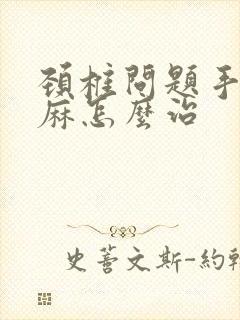 頸椎問題手
麻怎麼治
史蒂文斯-約翰